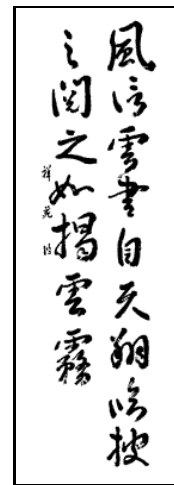 風信雲書自天翔臨披
之閲之如揭雲霧
祥苑